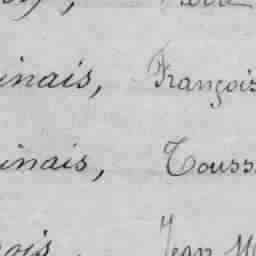 inais, François
inais, Touss
ois, Jean M